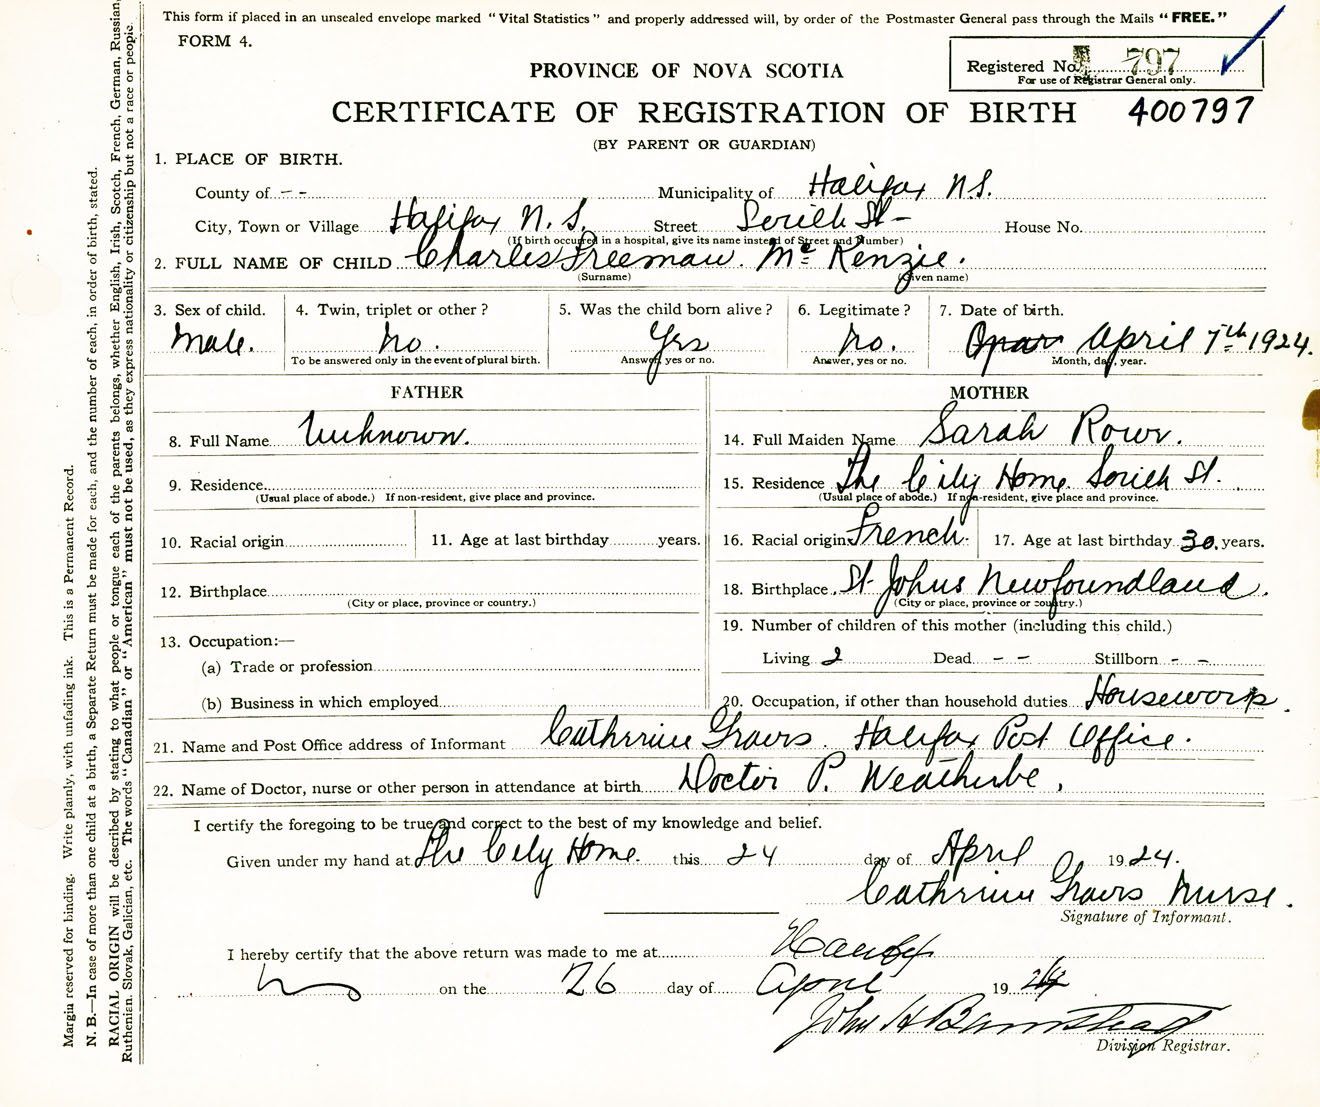 This form if placed in an unsealed envelope marked "Vital Statistics" and properly addressed will, by order of the Postmaster General pass through the Mails "FREE."
FORM 4.
Registered No. 797
For use of Registrar General only.
PROVINCE OF NOVA SCOTIA
CERTIFICATE OF REGISTRATION OF BIRTH 400797
(BY PARENT OR GUARDIAN)
1. PLACE OF BIRTH.
County of - - Municipality of Halifax N.S.
City, Town or Village Halifax N.S. Street South St- House No.
(If birth occurred in a hospital, give its name instead of Street and Number)
2. FULL NAME OF CHILD Charles Freeman. Mc Kenzie.
(Surname) (Given name)
3. Sex of child. 4. Twin, triplet or other? 5. Was the child born alive? 6. Legitimate? 7. Date of birth.
Male. No. Yes No. April 7th 1924.
To be answered only in the event of plural birth. Answer, yes or no. Answer, yes or no. Month, day, year.
FATHER
8. Full Name Unknown.
9. Residence
(Usual place of abode.) If non-resident, give place and province.
10. Racial origin 11. Age at last birthday years.
12. Birthplace
(City or place, province or country.)
13. Occupation:—
(a) Trade or profession
(b) Business in which employed
MOTHER
14. Full Maiden Name Sarah Rowe.
15. Residence The City Home South St.
(Usual place of abode.) If non-resident, give place and province.
16. Racial origin French. 17. Age at last birthday 30. years.
18. Birthplace St. Johns Newfoundland.
(City or place, province or country.)
19. Number of children of this mother (including this child.)
Living 2 Dead - - Stillborn - -
20. Occupation, if other than household duties Housework.
21. Name and Post Office address of Informant Cathrine Graves. Halifax Post Office.
22. Name of Doctor, nurse or other person in attendance at birth Doctor P. Weatherbe,
I certify the foregoing to be true and correct to the best of my knowledge and belief.
Given under my hand at The City Home. this 24 day of April 1924.
Cathrine Graves Nurse.
Signature of Informant.
I hereby certify that the above return was made to me at Halifax
on the 26 day of April 1924
John H Barnstead
Division Registrar.
Margin reserved for binding. Write plainly, with unfading ink. This is a Permanent Record.
N. B.—In case of more than one child at a birth, a Separate Return must be made for each, and the number of each, in order of birth, stated.
RACIAL ORIGIN will be described by stating to what people or tongue each of the parents belongs, whether English, Irish, Scotch, French, German, Russian,
Ruthenian, Slovak, Galician, etc. The words "Canadian" or "American" must not be used, as they express nationality or citizenship but not a race or people.